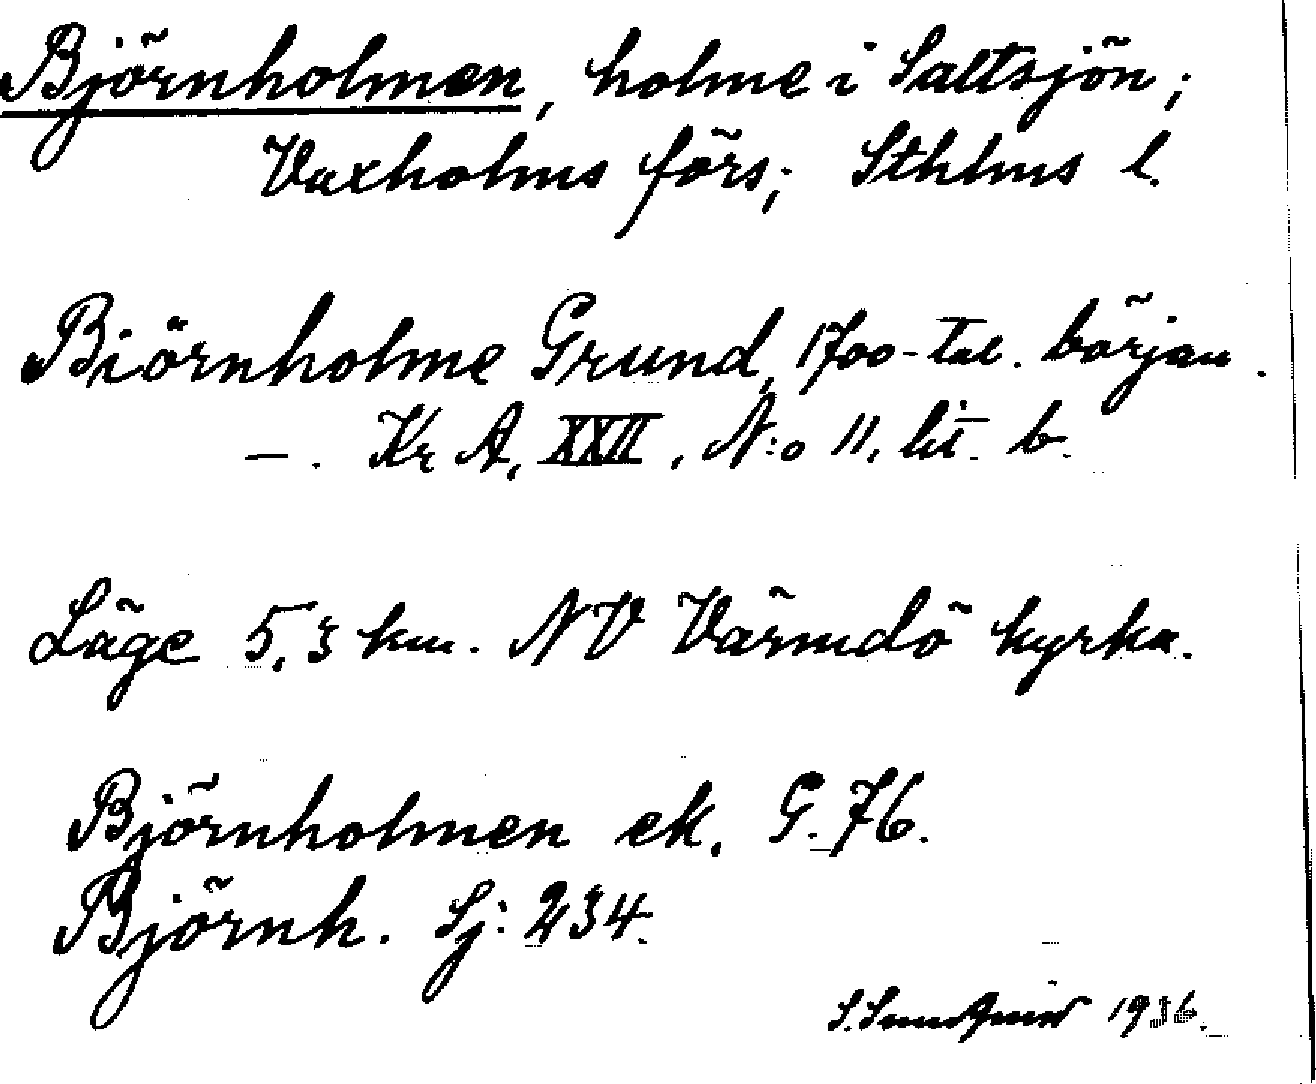 Björnholmen, holme i Saltsjön;
Vaxholms förs; Sthlms l.
Biörnholme Grund, 1700-tal. början.
—. Kr A, XXII, N:o 11, lit. b.
Läge 5,3 km. NV Värmdö kyrka.
Björnholmen ek. G. 76.
Björnh. Sj: 234.
S. Sundquist 1936.